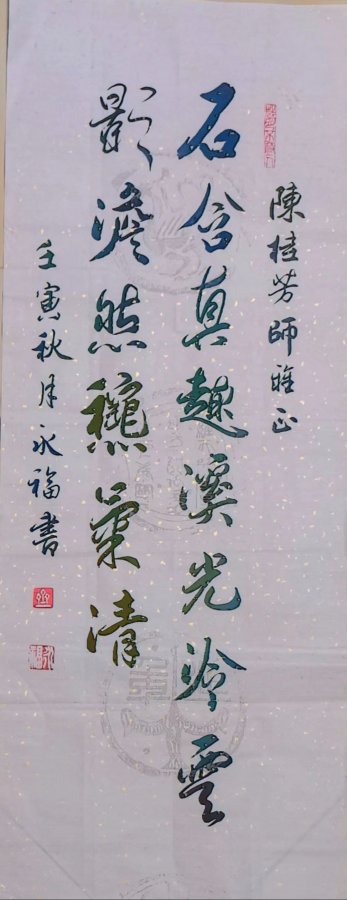 陳桂芳師雅正
石含真趣溪光冷雲
影澹然龝氣清
壬寅秋月永福書